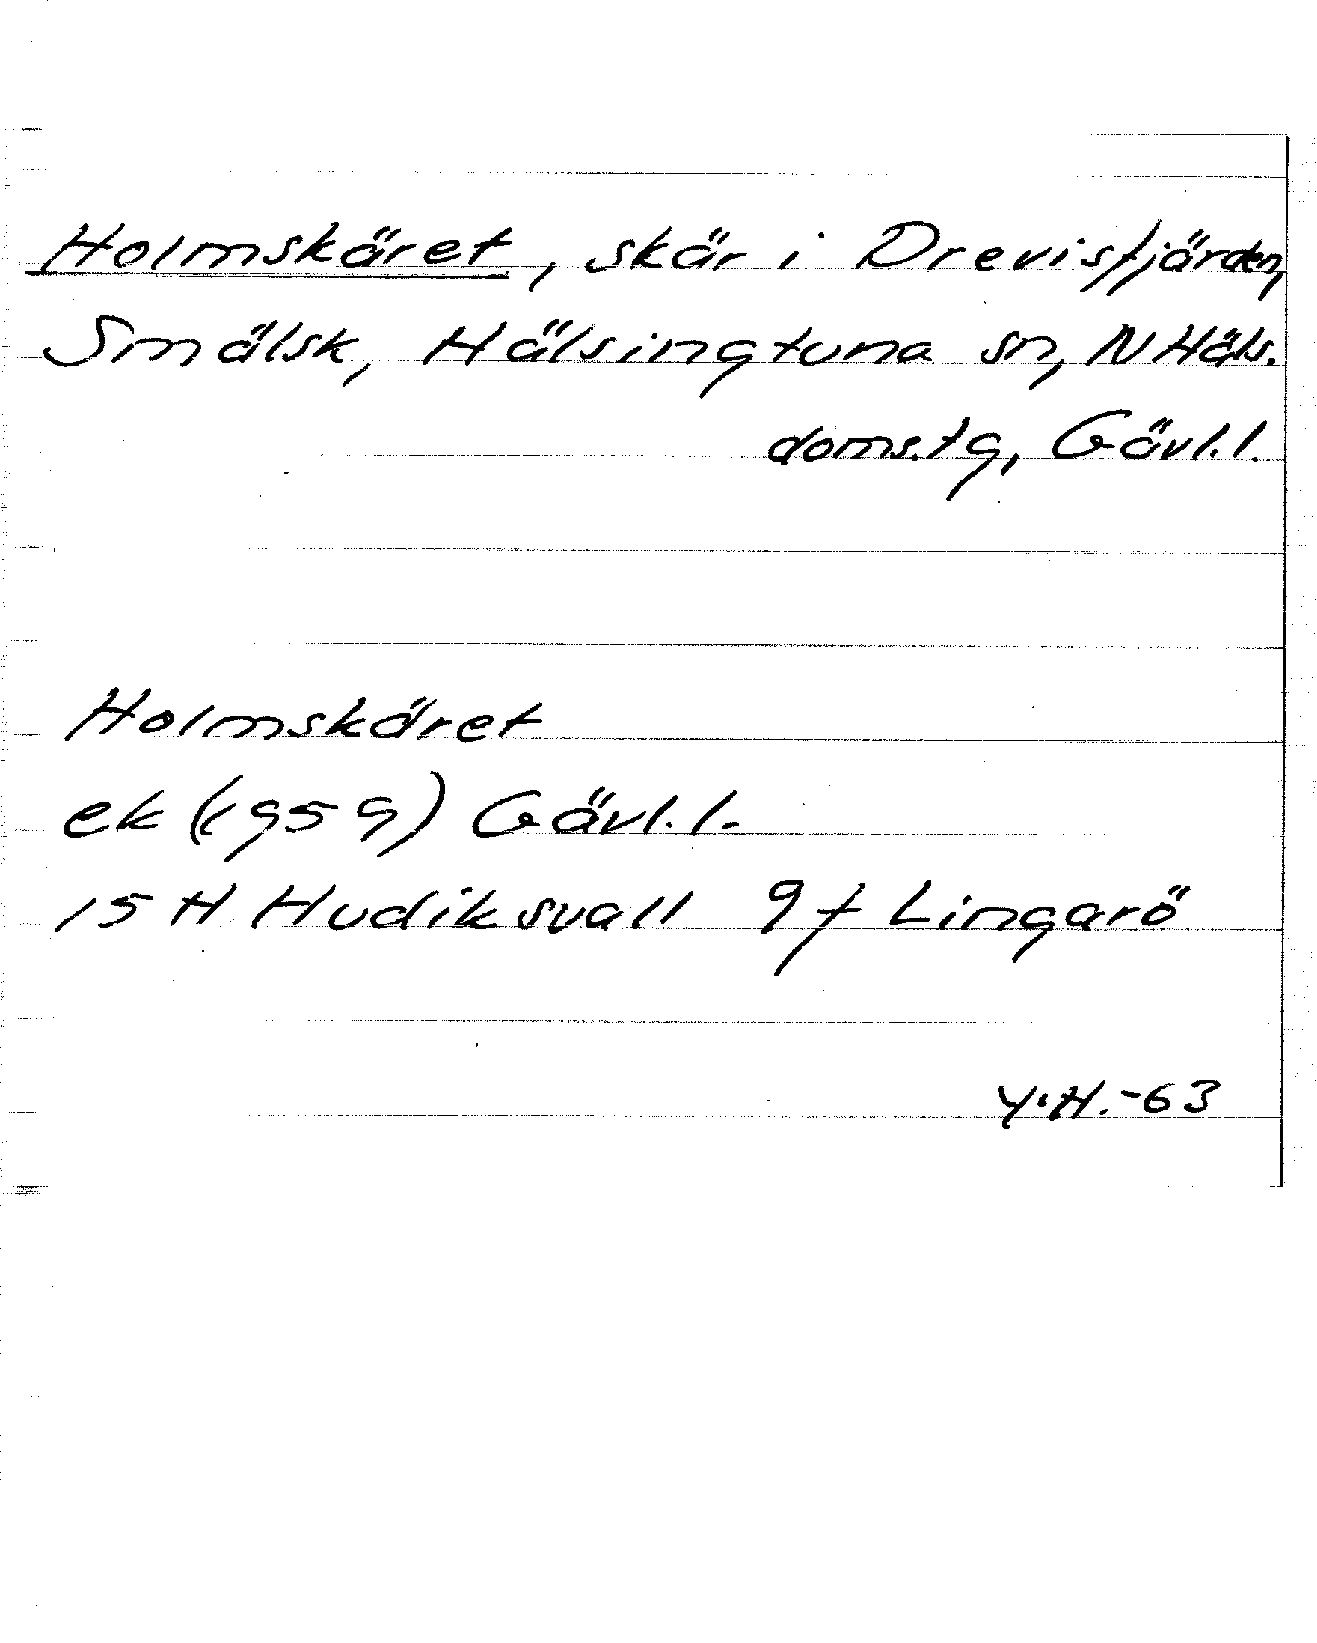 Holmskäret, skär i Drevisfjärden,
Smälsk, Hälsingtuna sn, N Häls.
doms.tg, Gävl.l.
Holmskäret
ek (1959) Gävl.l.
15 H Hudiksvall 9 f Lingarö
Y.H.-63